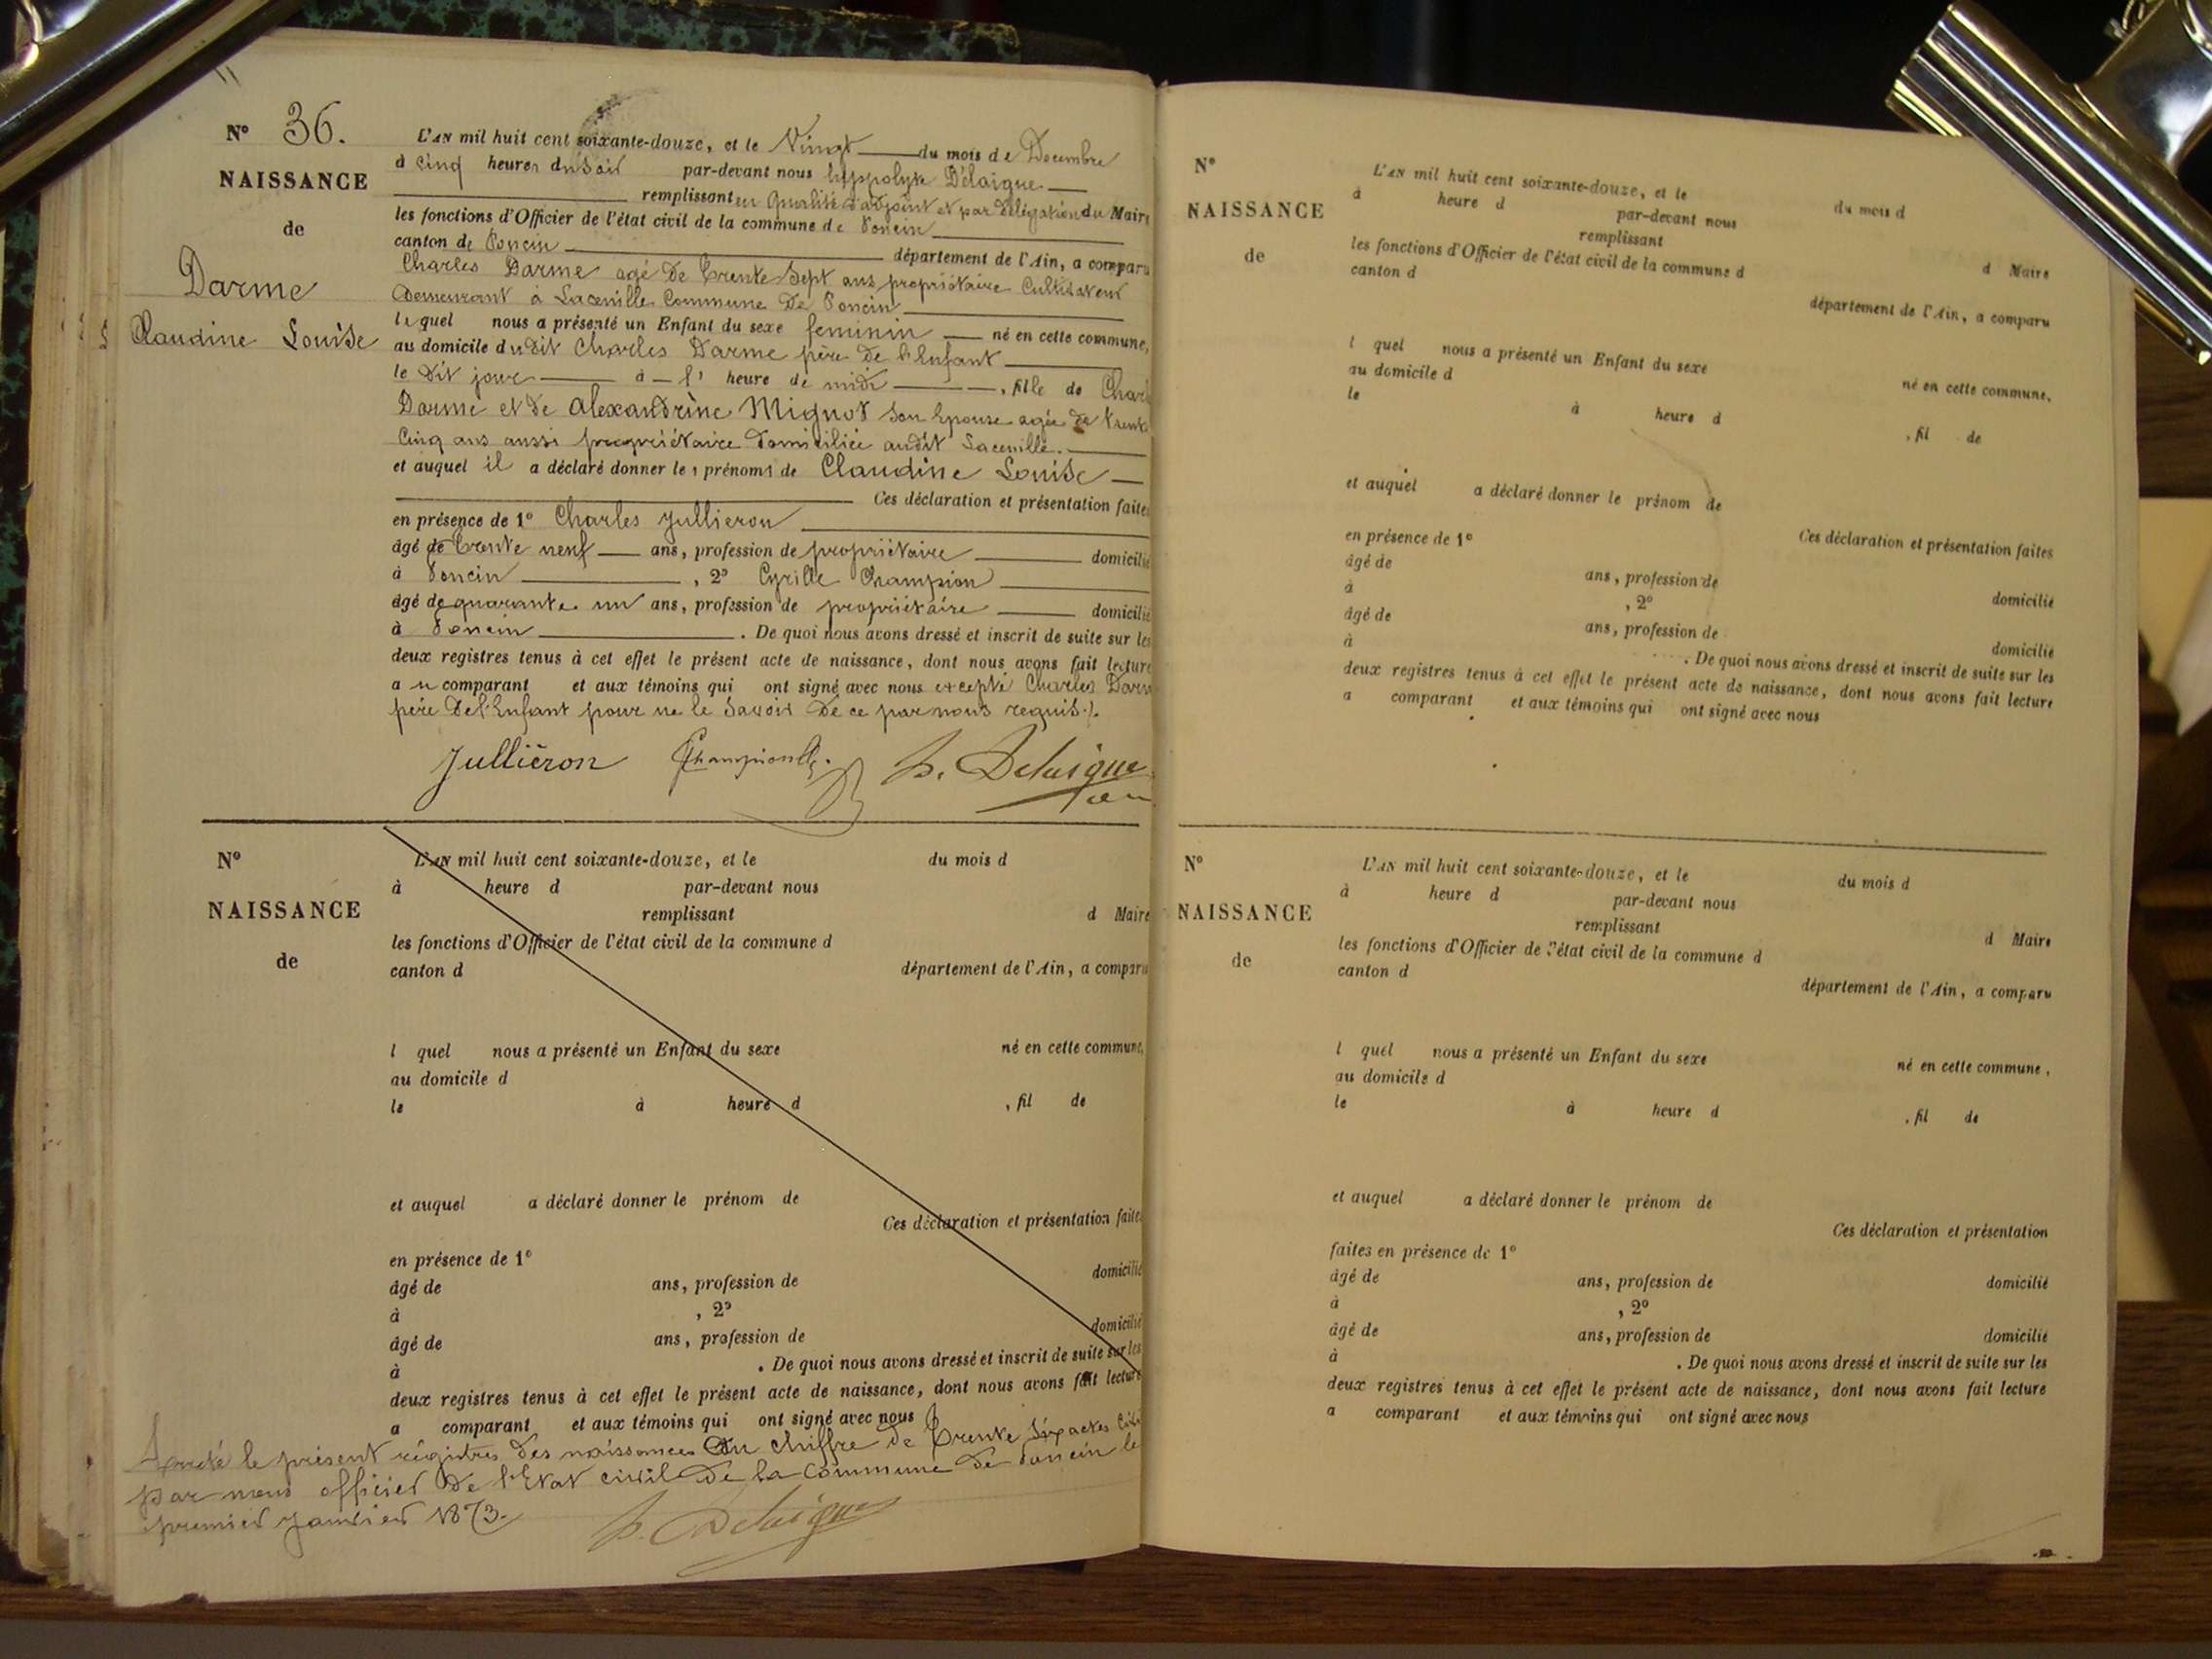 N° 36.
NAISSANCE
de
Darme
Claudine Louise
L'AN mil huit cent soixante-douze, et le Vingt du mois de Decembre
à cinq heures du Soir par-devant nous hyppolyte Délaigue
remplissant en qualité d'adjoint et par délégation du Maire
les fonctions d'Officier de l'état civil de la commune de Poncin
canton de Poncin département de l'Ain, a comparu
Charles Darme agé de trente Sept ans propriétaire Cultivateur
demeurant à Commune De Poncin
lequel nous a présenté un Enfant du sexe feminin né en cette commune,
au domicile du dit Charles Darme père de l'Enfant
le dit jour à l' heure de midi , fille de Charles
Darme et de Alexandrine Mignot Son Epouse agée de trente
Cinq ans aussi propriétaire domiciliée audit
et auquel il a déclaré donner les prénoms de Claudine Louise
Ces déclaration et présentation faites
en présence de 1° Charles Jullieron
âgé de trente neuf ans, profession de propriétaire domicilié
à Poncin , 2° Cyrille Champion
âgé de quarante un ans, profession de propriétaire domicilié
à Poncin . De quoi nous avons dressé et inscrit de suite sur les
deux registres tenus à cet effet le présent acte de naissance, dont nous avons fait lecture
au comparant et aux témoins qui ont signé avec nous excepté Charles Darme
père de l'Enfant pour ne le Savoir de ce par nous requis ./.
Julliéron Champion h. Delaigue
N°
NAISSANCE
de
L'AN mil huit cent soixante-douze, et le du mois d
à heure d par-devant nous
remplissant d Maire
les fonctions d'Officier de l'état civil de la commune d
canton d département de l'Ain, a comparu
l quel nous a présenté un Enfant du sexe né en cette commune,
au domicile d
le à heure d , fil de
et auquel a déclaré donner le prénom de
Ces déclaration et présentation faites
en présence de 1°
âgé de ans, profession de domicilié
à , 2°
âgé de ans, profession de domicilié
à . De quoi nous avons dressé et inscrit de suite sur les
deux registres tenus à cet effet le présent acte de naissance, dont nous avons fait lecture
a comparant et aux témoins qui ont signé avec nous
Arreté le présent régistres des naissances au chiffre de Trente Six actes
par nous officier de l'Etat civil de la Commune de Poncin le
premier Janvier 1873.
h. Delaigue
N°
NAISSANCE
de
L'AN mil huit cent soixante-douze, et le du mois d
à heure d par-devant nous
remplissant d Maire
les fonctions d'Officier de l'état civil de la commune d
canton d département de l'Ain, a comparu
l quel nous a présenté un Enfant du sexe né en cette commune,
au domicile d
le à heure d , fil de
et auquel a déclaré donner le prénom de
Ces déclaration et présentation faites
en présence de 1°
âgé de ans, profession de domicilié
à , 2°
âgé de ans, profession de domicilié
à . De quoi nous avons dressé et inscrit de suite sur les
deux registres tenus à cet effet le présent acte de naissance, dont nous avons fait lecture
a comparant et aux témoins qui ont signé avec nous
N°
NAISSANCE
de
L'AN mil huit cent soixante-douze, et le du mois d
à heure d par-devant nous
remplissant d Maire
les fonctions d'Officier de l'état civil de la commune d
canton d département de l'Ain, a comparu
l quel nous a présenté un Enfant du sexe né en cette commune,
au domicile d
le à heure d , fil de
et auquel a déclaré donner le prénom de
Ces déclaration et présentation
faites en présence de 1°
âgé de ans, profession de domicilié
à , 2°
âgé de ans, profession de domicilié
à . De quoi nous avons dressé et inscrit de suite sur les
deux registres tenus à cet effet le présent acte de naissance, dont nous avons fait lecture
a comparant et aux témoins qui ont signé avec nous